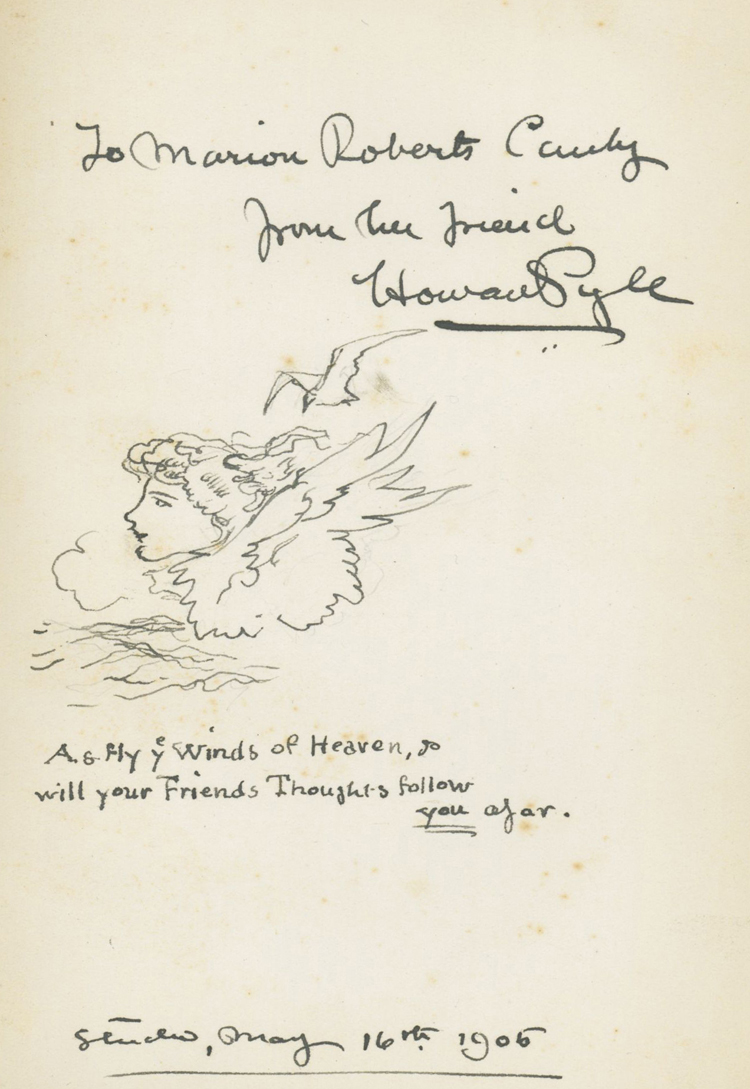 To Marion Roberts Canby
from her friend
Howard Pyle
As fly yᵉ Winds of Heaven, so
will your Friends Thoughts follow
you afar.
Studio, May 16th 1905